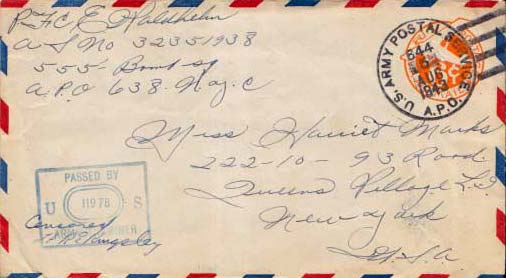 PFC E Waldhelm
A S No 32351938
555 - Bomb sq
A.P.O 638. N.Y.C
U.S. ARMY POSTAL SERVICE
644
6
AUG
1943
A.P.O.
Miss Harriet Marks
222-10 - 93 Road
Queens Village L.I.
New York
U.S.A
PASSED BY
U 11978 S
ARMY EXAMINER
Censored